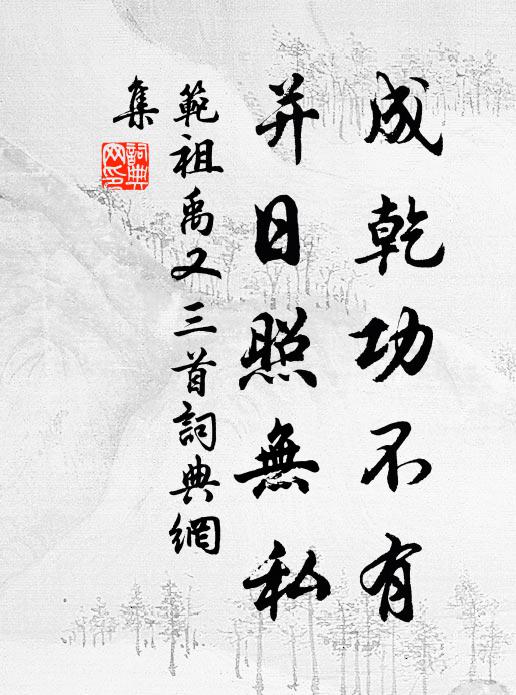 成乾功不有
并日照無私
範祖禹又三首詞典網
集
詞典
网印